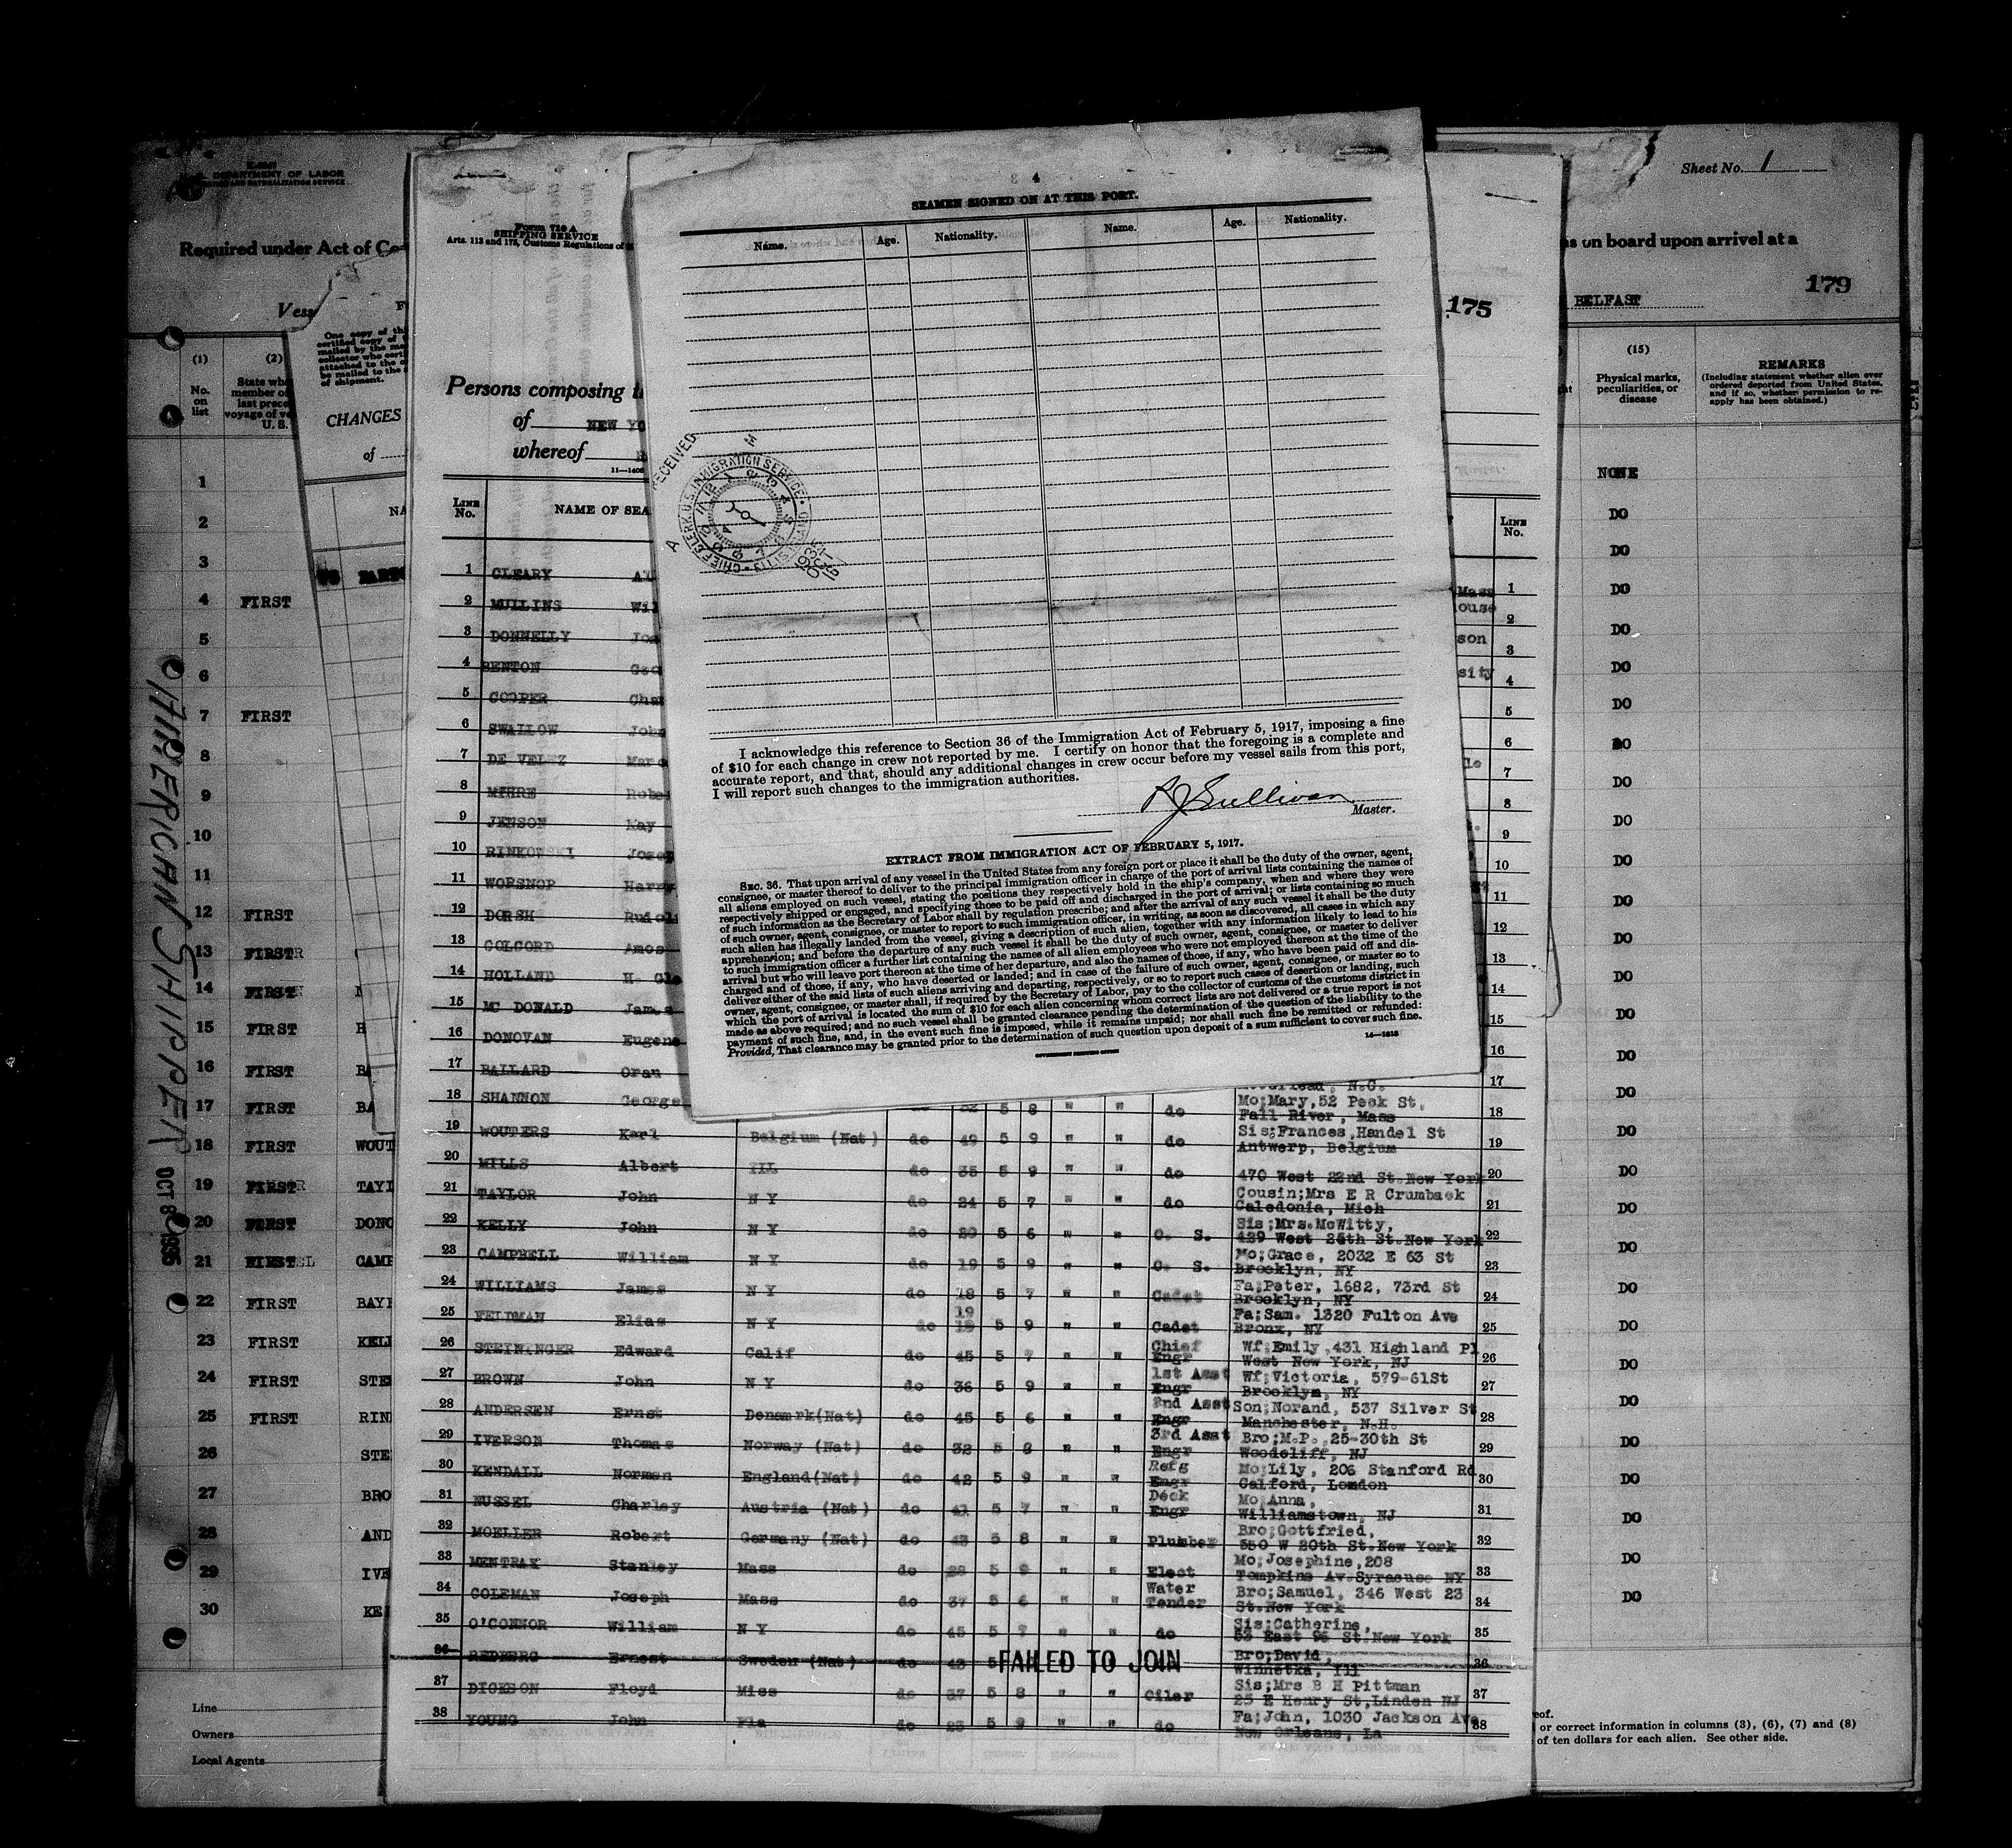 U.S. DEPARTMENT OF LABOR
IMMIGRATION AND NATURALIZATION SERVICE
Required under Act of Co
Vess
Sheet No. 1
s on board upon arrival at a
BELFAST
179
(1)
No. on list
(2)
State whe
member of
last prece
voyage of ve
U. S.
(15)
Physical marks, peculiarities, or disease
REMARKS
(Including statement whether alien ever ordered deported from United States, and if so, whether permission to reapply has been obtained.)
1 NONE
2 DO
3 DO
4 FIRST DO
5 DO
6 DO
7 FIRST DO
8 DO
9 DO
10 DO
11 DO
12 FIRST DO
13 FIRST DO
14 FIRST DO
15 FIRST DO
16 FIRST BA DO
17 FIRST BA DO
18 FIRST WOUT DO
19 FIRST TAYL DO
20 FIRST DONO DO
21 FIRST CAMP DO
22 FIRST DO
23 FIRST KELL DO
24 FIRST STE DO
25 FIRST RIN DO
26 STE DO
27 BRO DO
28 AND DO
29 IVE DO
30 KE DO
Line
Owners
Local Agents
eof.
or correct information in columns (3), (6), (7) and (8)
of ten dollars for each alien. See other side.
AMERICAN SHIPPER OCT 8 1935
One copy of th
certified copy of
mailed by the ma
collector who cert
attached to the
be mailed to the
of shipment.
CHANGES
of
NA
Form 710 A
SHIPPING SERVICE
Arts. 113 and 175, Customs Regulations of
175
Persons composing t
of NEW YO
whereof
LINE No.
NAME OF SEA
LINE No.
1 CLEARY Mass 1
2 MULLINS Wil ouse 2
3 DONNELLY Jos son 3
4 BENTON Geo sity 4
5 COOPER Cha 5
6 SWALLOW John 6
7 DE VELEZ Marc 7
8 MYHRE Robe 8
9 JENSON Kay 9
10 RINKOWSKI Josep 10
11 WORSNOP Harry 11
12 DORSH Rudol 12
13 COLCORD Amos 13
14 HOLLAND H. Gle 14
15 MC DONALD James 15
16 DONOVAN Eugene 16
17 BALLARD Oran N.C. 17
18 SHANNON George 5 8 " " do Mo;Mary,52 Peck St,
Fall River, Mass 18
19 WOUTERS Karl Belgium (Nat) do 49 5 9 " " do Sis;Frances,Handel St
Antwerp, Belgium 19
20 MILLS Albert ILL do 35 5 9 " " do 470 West 22nd St.New York 20
21 TAYLOR John N Y do 24 5 7 " " do Cousin;Mrs E R Crumback
Caledonia, Mich 21
22 KELLY John N Y do 20 5 6 " " O. S. Sis;Mrs.McWitty,
429 West 25th St.New York 22
23 CAMPBELL William N Y do 19 5 9 " " O. S. Mo;Grace, 2032 E 63 St
Brooklyn, NY 23
24 WILLIAMS James N Y do 18 5 7 " " Cadet Fa;Peter, 1682, 73rd St
Brooklyn, NY 24
25 FELDMAN Elias N Y do 19 5 9 " " Cadet Fa;Sam. 1320 Fulton Ave
Bronx, NY 25
26 STEININGER Edward Calif do 45 5 7 " " Chief Engr Wf;Emily,431 Highland Pl
West New York, NJ 26
27 BROWN John N Y do 36 5 9 " " 1st Asst Engr Wf;Victoria, 579-61St
Brooklyn, NY 27
28 ANDERSEN Ernst Denmark(Nat) do 45 5 6 " " 2nd Asst Engr Son;Norand, 537 Silver St
Manchester, N.H. 28
29 IVERSON Thomas Norway (Nat) do 32 5 8 " " 3rd Asst Engr Bro;M.P.,25-30th St
Woodcliff, NJ 29
30 KENDALL Norman England(Nat) do 42 5 9 " " Refg Engr Mo;Lily, 206 Stanford Rd
Calford, London 30
31 NUSSEL Charley Austria (Nat) do 41 5 7 " " Deck Engr Mo;Anna,
Williamstown, NJ 31
32 MOELLER Robert Germany (Nat) do 43 5 8 " " Plumber Bro;Gottfried,
550 W 20th St.New York 32
33 MENTRAK Stanley Mass do 28 5 9 " " Elect Mo;Josephine,208
Tompkins Av.Syracuse NY 33
34 COLEMAN Joseph Mass do 37 5 6 " " Water Tender Bro;Samuel, 346 West 23
St.New York 34
35 O'CONNOR William N Y do 45 5 7 " " do Sis;Catherine,
53 East 96 St.New York 35
36 REDBERG Ernest Sweden (Nat) do 43 5 FAILED TO JOIN Bro;David,
Winnetka, Ill 36
37 DICKSON Floyd Miss do 37 5 8 " " Oiler Sis;Mrs B H Pittman
25 E Henry St,Linden NJ 37
38 YOUNG John Fla do 23 5 9 " " do Fa;John, 1030 Jackson Ave
New Orleans, La 38
4
SEAMEN SIGNED ON AT THIS PORT.
Name. Age. Nationality. Name. Age. Nationality.
RECEIVED
CHIEF CLERK. U.S. IMMIGRATION SERVICE
I acknowledge this reference to Section 36 of the Immigration Act of February 5, 1917, imposing a fine
of $10 for each change in crew not reported by me. I certify on honor that the foregoing is a complete and
accurate report, and that, should any additional changes in crew occur before my vessel sails from this port,
I will report such changes to the immigration authorities.
RJ Sullivan
Master.
EXTRACT FROM IMMIGRATION ACT OF FEBRUARY 5, 1917.
SEC. 36. That upon arrival of any vessel in the United States from any foreign port or place it shall be the duty of the owner, agent,
consignee, or master thereof to deliver to the principal immigration officer in charge of the port of arrival lists containing the names of
all aliens employed on such vessel, stating the positions they respectively hold in the ship's company, when and where they were
respectively shipped or engaged, and specifying those to be paid off and discharged in the port of arrival; or lists containing so much
of such information as the Secretary of Labor shall by regulation prescribe; and after the arrival of any such vessel it shall be the duty
of such owner, agent, consignee, or master to report to such immigration officer, in writing, as soon as discovered, all cases in which any
such alien has illegally landed from the vessel, giving a description of such alien, together with any information likely to lead to his
apprehension; and before the departure of any such vessel it shall be the duty of such owner, agent, consignee, or master to deliver
to such immigration officer a further list containing the names of all alien employees who were not employed thereon at the time of the
arrival but who will leave port thereon at the time of her departure, and also the names of those, if any, who have been paid off and dis-
charged and of those, if any, who have deserted or landed; and in case of the failure of such owner, agent, consignee, or master so to
deliver either of the said lists of such aliens arriving and departing, respectively, or so to report such cases of desertion or landing, such
owner, agent, consignee, or master shall, if required by the Secretary of Labor, pay to the collector of customs of the customs district in
which the port of arrival is located the sum of $10 for each alien concerning whom correct lists are not delivered or a true report is not
made as above required; and no such vessel shall be granted clearance pending the determination of the question of the liability to the
payment of such fine, and, in the event such fine is imposed, while it remains unpaid; nor shall such fine be remitted or refunded:
Provided, That clearance may be granted prior to the determination of such question upon deposit of a sum sufficient to cover such fine.
GOVERNMENT PRINTING OFFICE